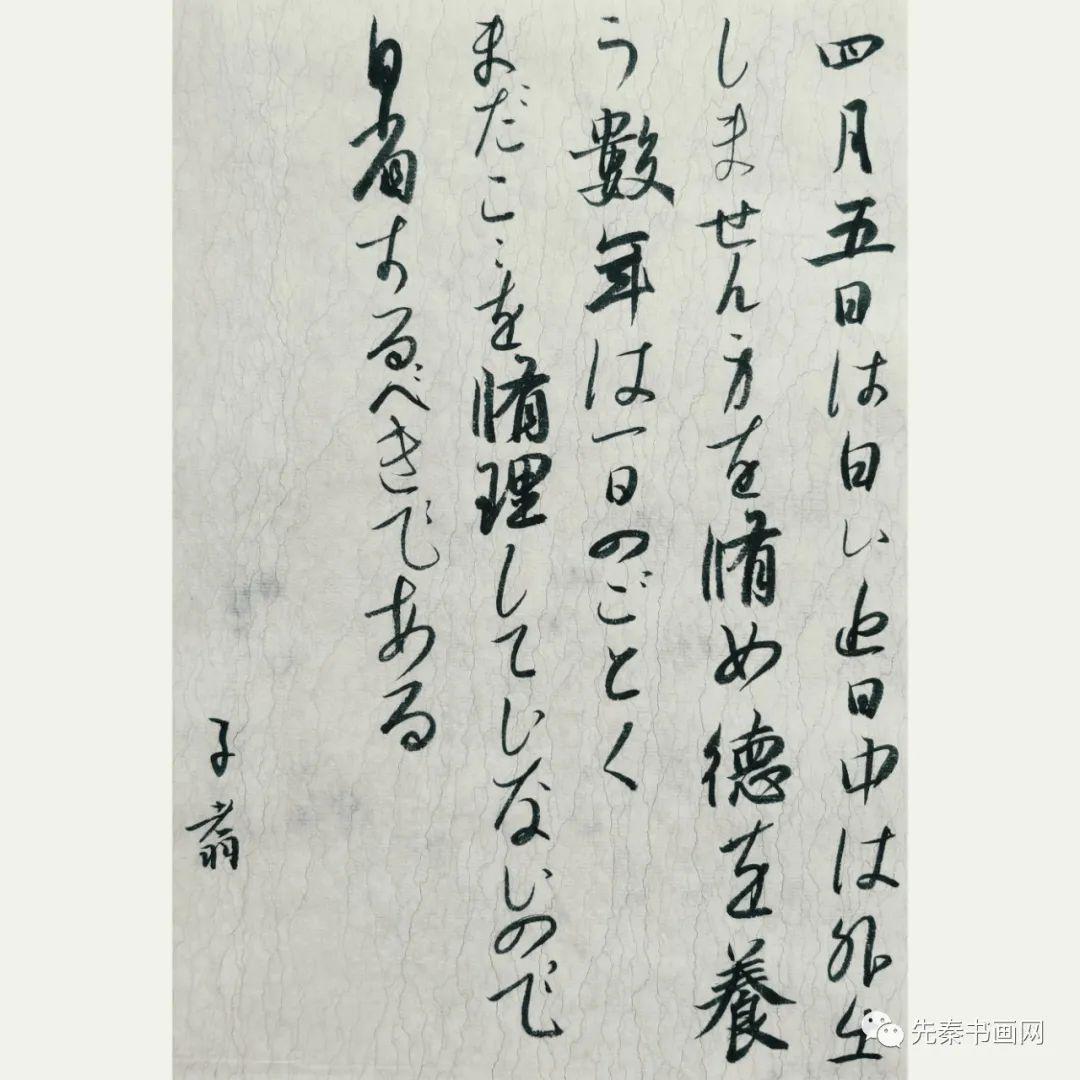 四月五日は白い近日中は外出
しません方を脩め德を養
う數年は一日のごとく
まだこゝを脩理してじないので
自省するべきである
子翁
先秦书画网